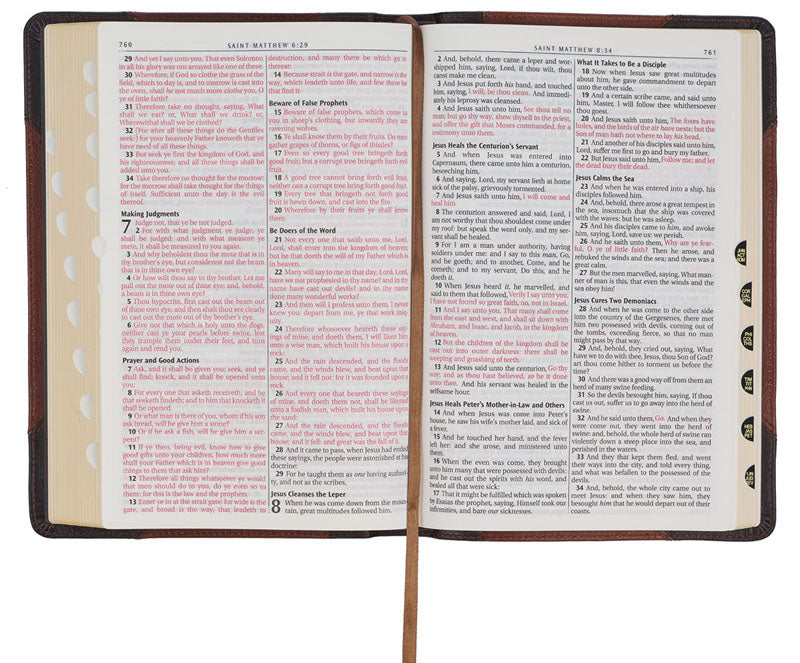 760
SAINT MATTHEW 6:29
29 And yet I say unto you, That even Solomon
in all his glory was not arrayed like one of these.
30 Wherefore, if God so clothe the grass of the
field, which to day is, and to morrow is cast into
the oven, shall he not much more clothe you, O
ye of little faith?
31 Therefore take no thought, saying, What
shall we eat? or, What shall we drink? or,
Wherewithal shall we be clothed?
32 (For after all these things do the Gentiles
seek:) for your heavenly Father knoweth that ye
have need of all these things.
33 But seek ye first the kingdom of God, and
his righteousness; and all these things shall be
added unto you.
34 Take therefore no thought for the morrow:
for the morrow shall take thought for the things
of itself. Sufficient unto the day is the evil
thereof.
Making Judgments
7 Judge not, that ye be not judged.
2 For with what judgment ye judge, ye
shall be judged: and with what measure ye
mete, it shall be measured to you again.
3 And why beholdest thou the mote that is in
thy brother's eye, but considerest not the beam
that is in thine own eye?
4 Or how wilt thou say to thy brother, Let me
pull out the mote out of thine eye; and, behold,
a beam is in thine own eye?
5 Thou hypocrite, first cast out the beam out
of thine own eye; and then shalt thou see clearly
to cast out the mote out of thy brother's eye.
6 Give not that which is holy unto the dogs,
neither cast ye your pearls before swine, lest
they trample them under their feet, and turn
again and rend you.
Prayer and Good Actions
7 Ask, and it shall be given you; seek, and ye
shall find; knock, and it shall be opened unto
you:
8 For every one that asketh receiveth; and he
that seeketh findeth; and to him that knocketh it
shall be opened.
9 Or what man is there of you, whom if his son
ask bread, will he give him a stone?
10 Or if he ask a fish, will he give him a ser-
pent?
11 If ye then, being evil, know how to give
good gifts unto your children, how much more
shall your Father which is in heaven give good
things to them that ask him?
12 Therefore all things whatsoever ye would
that men should do to you, do ye even so to
them: for this is the law and the prophets.
13 Enter ye in at the strait gate: for wide is the
gate, and broad is the way, that leadeth to
destruction, and many there be which go in
thereat:
14 Because strait is the gate, and narrow is the
way, which leadeth unto life, and few there be
that find it.
Beware of False Prophets
15 Beware of false prophets, which come to
you in sheep's clothing, but inwardly they are
ravening wolves.
16 Ye shall know them by their fruits. Do men
gather grapes of thorns, or figs of thistles?
17 Even so every good tree bringeth forth
good fruit; but a corrupt tree bringeth forth evil
fruit.
18 A good tree cannot bring forth evil fruit,
neither can a corrupt tree bring forth good fruit.
19 Every tree that bringeth not forth good
fruit is hewn down, and cast into the fire.
20 Wherefore by their fruits ye shall know
them.
Be Doers of the Word
21 Not every one that saith unto me, Lord,
Lord, shall enter into the kingdom of heaven;
but he that doeth the will of my Father which is
in heaven.
22 Many will say to me in that day, Lord, Lord,
have we not prophesied in thy name? and in thy
name have cast out devils? and in thy name
done many wonderful works?
23 And then will I profess unto them, I never
knew you: depart from me, ye that work iniq-
uity.
24 Therefore whosoever heareth these say-
ings of mine, and doeth them, I will liken him
unto a wise man, which built his house upon a
rock:
25 And the rain descended, and the floods
came, and the winds blew, and beat upon that
house; and it fell not: for it was founded upon a
rock.
26 And every one that heareth these sayings
of mine, and doeth them not, shall be likened
unto a foolish man, which built his house upon
the sand:
27 And the rain descended, and the floods
came, and the winds blew, and beat upon that
house; and it fell: and great was the fall of it.
28 And it came to pass, when Jesus had ended
these sayings, the people were astonished at his
doctrine:
29 For he taught them as one having author-
ity, and not as the scribes.
Jesus Cleanses the Leper
8 When he was come down from the moun-
tain, great multitudes followed him.
SAINT MATTHEW 8:34
761
2 And, behold, there came a leper and wor-
shipped him, saying, Lord, if thou wilt, thou
canst make me clean.
3 And Jesus put forth his hand, and touched
him, saying, I will; be thou clean. And immedi-
ately his leprosy was cleansed.
4 And Jesus saith unto him, See thou tell no
man; but go thy way, shew thyself to the priest,
and offer the gift that Moses commanded, for a
testimony unto them.
Jesus Heals the Centurion's Servant
5 And when Jesus was entered into
Capernaum, there came unto him a centurion,
beseeching him,
6 And saying, Lord, my servant lieth at home
sick of the palsy, grievously tormented.
7 And Jesus saith unto him, I will come and
heal him.
8 The centurion answered and said, Lord, I
am not worthy that thou shouldest come under
my roof: but speak the word only, and my ser-
vant shall be healed.
9 For I am a man under authority, having
soldiers under me: and I say to this man, Go,
and he goeth; and to another, Come, and he
cometh; and to my servant, Do this, and he
doeth it.
10 When Jesus heard it, he marvelled, and
said to them that followed, Verily I say unto you,
I have not found so great faith, no, not in Israel.
11 And I say unto you, That many shall come
from the east and west, and shall sit down with
Abraham, and Isaac, and Jacob, in the kingdom
of heaven.
12 But the children of the kingdom shall be
cast out into outer darkness: there shall be
weeping and gnashing of teeth.
13 And Jesus said unto the centurion, Go thy
way; and as thou hast believed, so be it done
unto thee. And his servant was healed in the
selfsame hour.
Jesus Heals Peter's Mother-in-Law and Others
14 And when Jesus was come into Peter's
house, he saw his wife's mother laid, and sick of
a fever.
15 And he touched her hand, and the fever
left her: and she arose, and ministered unto
them.
16 When the even was come, they brought
unto him many that were possessed with devils:
and he cast out the spirits with his word, and
healed all that were sick:
17 That it might be fulfilled which was spoken
by Esaias the prophet, saying, Himself took our
infirmities, and bare our sicknesses.
What It Takes to Be a Disciple
18 Now when Jesus saw great multitudes
about him, he gave commandment to depart
unto the other side.
19 And a certain scribe came, and said unto
him, Master, I will follow thee whithersoever
thou goest.
20 And Jesus saith unto him, The foxes have
holes, and the birds of the air have nests; but the
Son of man hath not where to lay his head.
21 And another of his disciples said unto him,
Lord, suffer me first to go and bury my father.
22 But Jesus said unto him, Follow me; and let
the dead bury their dead.
Jesus Calms the Sea
23 And when he was entered into a ship, his
disciples followed him.
24 And, behold, there arose a great tempest in
the sea, insomuch that the ship was covered
with the waves: but he was asleep.
25 And his disciples came to him, and awoke
him, saying, Lord, save us: we perish.
26 And he saith unto them, Why are ye fear-
ful, O ye of little faith? Then he arose, and
rebuked the winds and the sea; and there was a
great calm.
27 But the men marvelled, saying, What man-
ner of man is this, that even the winds and the
sea obey him!
Jesus Cures Two Demoniacs
28 And when he was come to the other side
into the country of the Gergesenes, there met
him two possessed with devils, coming out of
the tombs, exceeding fierce, so that no man
might pass by that way.
29 And, behold, they cried out, saying, What
have we to do with thee, Jesus, thou Son of God?
art thou come hither to torment us before the
time?
30 And there was a good way off from them an
herd of many swine feeding.
31 So the devils besought him, saying, If thou
cast us out, suffer us to go away into the herd of
swine.
32 And he said unto them, Go. And when they
were come out, they went into the herd of
swine: and, behold, the whole herd of swine ran
violently down a steep place into the sea, and
perished in the waters.
33 And they that kept them fled, and went
their ways into the city, and told every thing,
and what was befallen to the possessed of the
devils.
34 And, behold, the whole city came out to
meet Jesus: and when they saw him, they
besought him that he would depart out of their
coasts.
JHN
ACT
ROM
COR
GAL
EPH
PHI
COL
THS
TIM
TIT
PHN
HEB
JAS
PET
JHN
JUD
REV